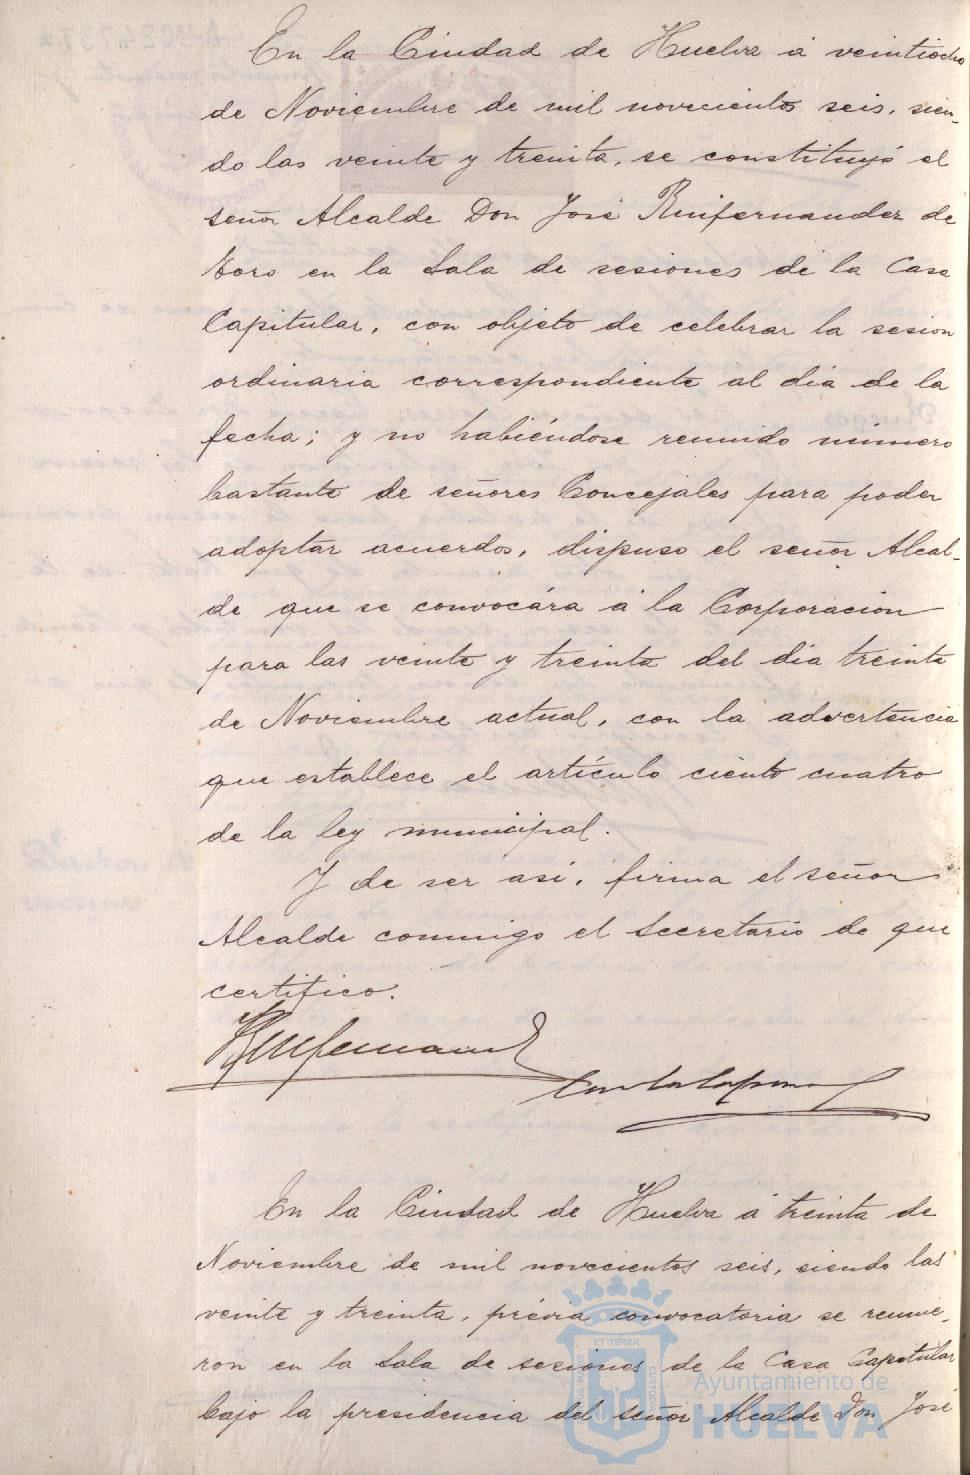 En la Ciudad de Huelva á veintiocho
de Noviembre de mil novecientos seis, sien-
do las veinte y treinta, se constituyó el
señor Alcalde Don José Ruifernandez de
Toro en la Sala de sesiones de la Casa
Capitular, con objeto de celebrar la sesion
ordinaria correspondiente al dia de la
fecha; y no habiéndose reunido número
bastante de señores Concejales para poder
adoptar acuerdos, dispuso el señor Alcal-
de que se convocára á la Corporacion
para las veinte y treinta del dia treinta
de Noviembre actual, con la advertencia
que establece el artículo ciento cuatro
de la ley municipal.
Y de ser asi, firma el señor
Alcalde conmigo el Secretario de que
certifico.
En la Ciudad de Huelva á treinta de
Noviembre de mil novecientos seis, siendo las
veinte y treinta, prévia convocatoria se reunie-
ron en la Sala de sesiones de la Casa Capitular
bajo la presidencia del señor Alcalde Don José
Ayuntamiento de
HUELVA